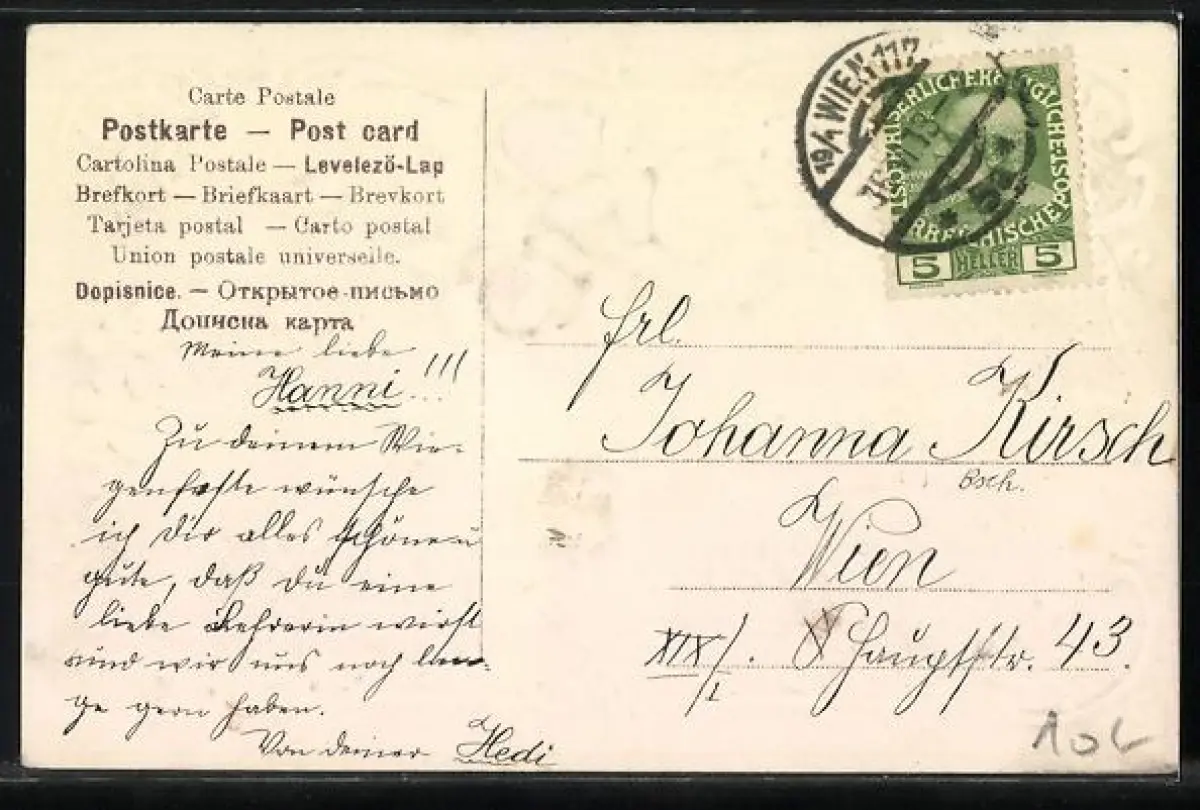 Carte Postale
Postkarte — Post card
Cartolina Postale — Levelező-Lap
Brefkort — Briefkaart — Brevkort
Tarjeta postal — Carto postal
Union postale universelle.
Dopisnice. — Открытое-письмо
Дописна карта
Meine liebe
Hanni!!!
Zu deinem Wie-
genfeste wünsche
ich Dir alles schöne u
gute, daß du eine
liebe Lehrerin wirst
und wir uns noch lan-
ge gern haben.
Von deiner Hedi
19/1 WIEN 117
5 HELLER 5
Frl.
Johanna Kirsch
Bsch.
Wien
XIX/1. Hauptstr. 43.